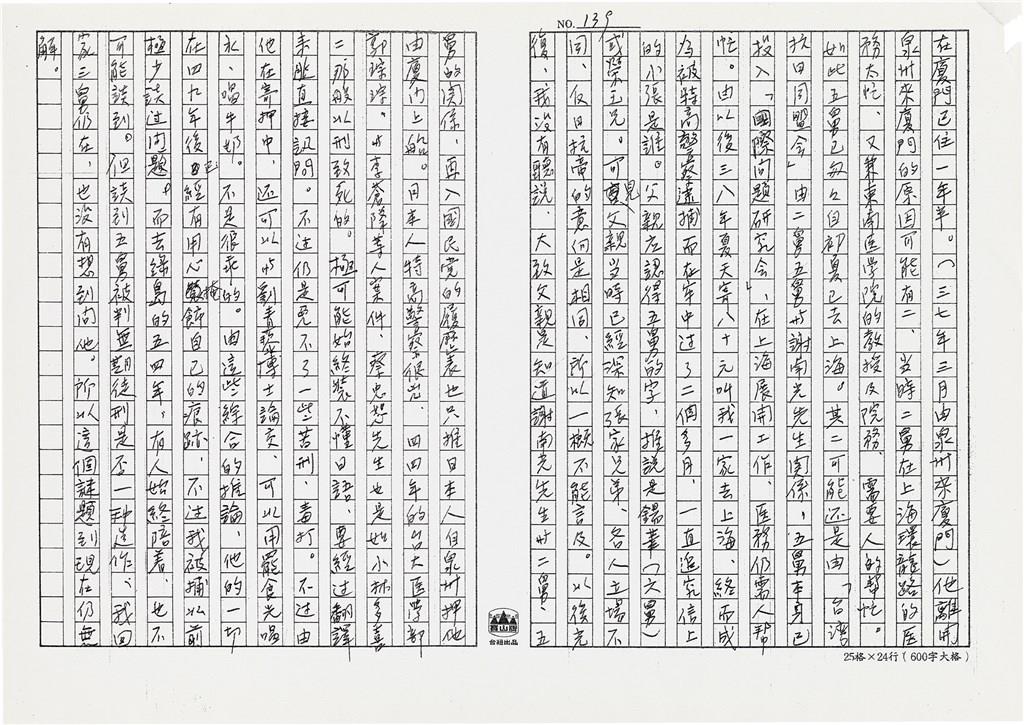 NO. 139
在廈門已住一年半。(三七年三月由泉州來廈門)他離開
泉州來廈門的原因可能有二、当時二舅在上海環龍路的医
務太忙、又兼東南医学院的教授及院務、需要人的幫忙。
如此五舅已匆々自初夏已去上海。其二可能还是由「台湾
抗日同盟会」由二舅五舅与謝南光先生関係、五舅本身已
投入「國際问題研究会」、在上海展開工作、医務仍需人幫
忙。由以後三八年夏天寄八十元叫我一家去上海、終而成
为被特高警察逮捕而在牢中过了二個多月、一直追究信上
的小張是誰。父親应認得五舅的字、推說是錫華(六舅)
或榮王兄。可見父親当時已經深知張家兄弟、各人立場不
同、仅日抗帝的意向是相同、所以一概不能言及。以後光
復、我没有聽説、大致父親是知道謝南光先生与二舅、五
舅的関係、再入國民党的履歷表也只推日本人自泉州押他
由廈门上船。日本人特高警察很兇、四四年的台大医学部
郭琇琮。与李蒼降等人案件、蔡忠恕先生也是如小林多喜
二那般以刑致死的。極可能始終装不懂日語、要經过翻譯
未能直接訊問。不过仍是免不了一些苦刑、毒打。不过由
他在寄押中、还可以与劉青雲博士論交、可以用罷食光唱
水、喝牛奶。不是很乖的。由這些綜合的推論、他的一切
在四九年後已經有用心掩飾自己的痕跡、不过我被捕以前
極少談过问題。而去綠島的五四年、有人始終陪着、也不
可能談到。但談到五舅被判無期徒刑是否一种造作、我回
家三舅仍在、也没有想到问他。所以這個謎題到現在仍無
解。
高山牌
台紙出品
25格×24行(600字大格)